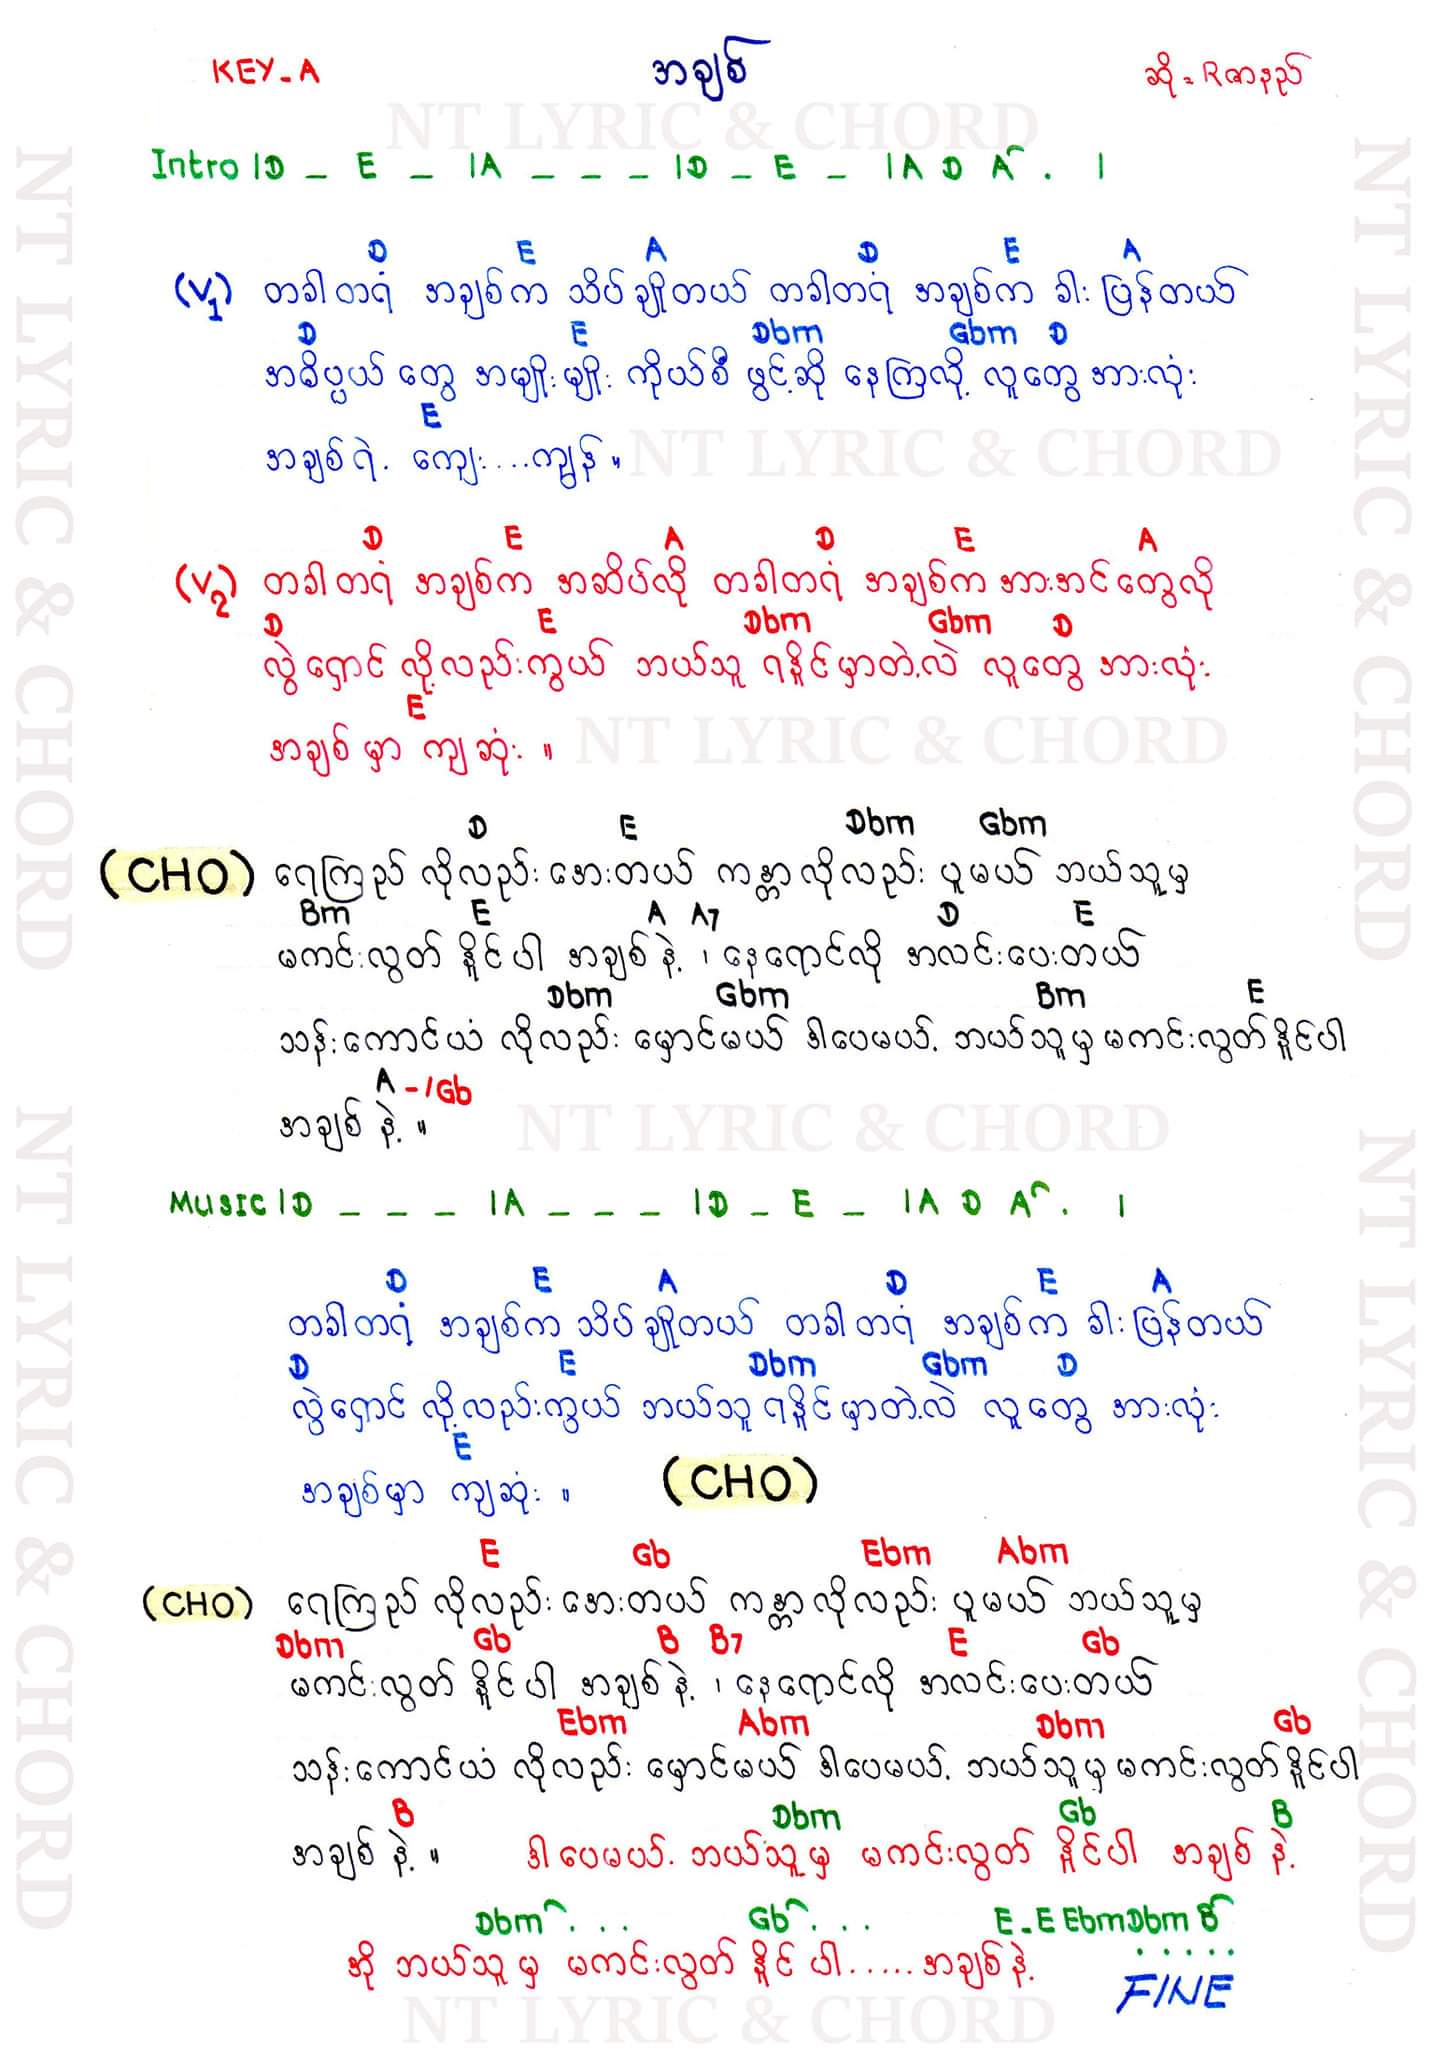 KEY-A အချစ် ဆို = R ဇာနည်
NT LYRIC & CHORD
Intro |D _ E _ |A _ _ _ |D _ E _ |A D A . |
D E A D E A
(V1) တခါတရံ အချစ်က သိပ်ချိုတယ် တခါတရံ အချစ်က ခါးပြန်တယ်
D E Dbm Gbm D
အဓိပ္ပယ်တွေ အမျိုးမျိုး ကိုယ်စီ ဖွင့်ဆို နေကြလို့ လူတွေ အားလုံး
E
အချစ်ရဲ့ ကျေး...ကျွန် ။
NT LYRIC & CHORD
D E A D E A
(V2) တခါတရံ အချစ်က အဆိပ်လို တခါတရံ အချစ်က အားအင်တွေလို
D E Dbm Gbm D
လွဲရှောင် လို့လည်းကွယ် ဘယ်သူ ရနိုင်မှာတဲ့လဲ လူတွေ အားလုံး
E
အချစ်မှာ ကျဆုံး ။
NT LYRIC & CHORD
D E Dbm Gbm
(CHO) ရေကြည် လိုလည်း အေးတယ် ကန္တာလိုလည်း ပူမယ် ဘယ်သူမှ
Bm E A A7 D E
မကင်းလွတ် နိုင်ပါ အချစ်နဲ့ ၊ နေရောင်လို အလင်းပေးတယ်
Dbm Gbm Bm E
သန်းကောင်ယံ လိုလည်း မှောင်မယ် ဒါပေမယ့် ဘယ်သူမှ မကင်းလွတ်နိုင်ပါ
A -/Gb
အချစ်နဲ့ ။
NT LYRIC & CHORD
Music |D _ _ _ |A _ _ _ |D _ E _ |A D A . |
D E A D E A
တခါတရံ အချစ်က သိပ်ချိုတယ် တခါတရံ အချစ်က ခါးပြန်တယ်
D E Dbm Gbm D
လွဲရှောင် လို့လည်းကွယ် ဘယ်သူ ရနိုင်မှာတဲ့လဲ လူတွေ အားလုံး
E
အချစ်မှာ ကျဆုံး ။ (CHO)
E Gb Ebm Abm
(CHO) ရေကြည် လိုလည်း အေးတယ် ကန္တာလိုလည်း ပူမယ် ဘယ်သူမှ
Dbm Gb B B7 E Gb
မကင်းလွတ် နိုင်ပါ အချစ်နဲ့ ၊ နေရောင်လို အလင်းပေးတယ်
Ebm Abm Dbm Gb
သန်းကောင်ယံ လိုလည်း မှောင်မယ် ဒါပေမယ့် ဘယ်သူမှ မကင်းလွတ်နိုင်ပါ
B Dbm Gb B
အချစ်နဲ့ ။ ဒါပေမယ့် ဘယ်သူမှ မကင်းလွတ် နိုင်ပါ အချစ် နဲ့
Dbm . . . Gb . . . E-E Ebm Dbm B
အို ဘယ်သူမှ မကင်းလွတ် နိုင်ပါ......အချစ်နဲ့
FINE
NT LYRIC & CHORD
NT LYRIC & CHORD
NT LYRIC & CHORD
NT LYRIC & CHORD
NT LYRIC & CHORD